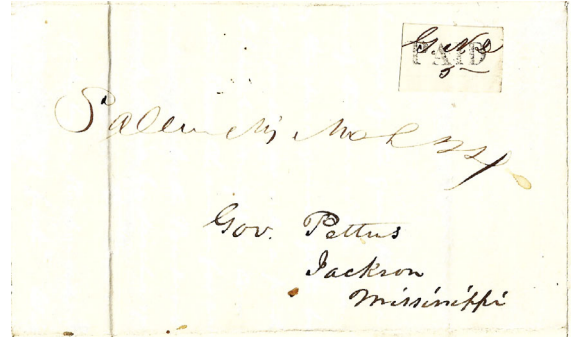 PAID
5
Salem Mi
Gov. Pettus
Jackson
Mississippi